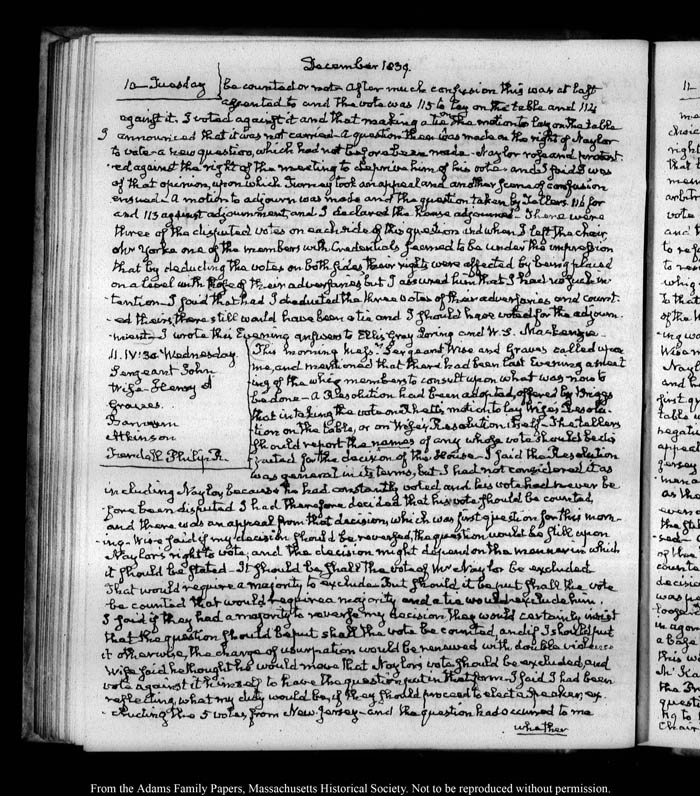 December 1839.
10 Tuesday
be counted or not. After much confusion this was at last
assented to and the vote was 115 to lay on the table and 114
against it. I voted against it and that making a tie the motion to lay on the table
announced that it was not carried. A question then was made on the right of Naylor
to vote a new question, which had not before been made. Naylor rose and protest-
-ed against the right of the meeting to deprive him of his vote and I said I was
of that opinion, upon which Turney took an appeal and another scene of confusion
ensued. A motion to adjourn was made and the question taken by Tellers 116 for
and 113 against adjournment, and I declared the house adjourned. There were
three of the disputed votes on each side of this question and when I left the chair,
Mr Yorke one of the members with Credentials seemed to be under the impression
that by deducting the votes on both sides their rights were affected by being placed
on a level with those of their adversaries but I assured him that I had no such in-
-tention. I said that had I deducted the three votes of their adversaries and count-
-ed theirs, there still would have been a tie and I should have voted for the adjourn-
-ment. I wrote this Evening answers to Ellis Gray Loring and W. L. Mackenzie
11. IV:30 Wednesday
Sergeant John
Wise Henry A
Graves.
Atkinson
Frendall Philip R.
This morning Messrs Sergeant Wise and Graves called upon
me, and mentioned that there had been last Evening a meet-
ing of the whig members to consult upon what was now to
be done. A Resolution had been adopted, offered by Briggs
that in taking the vote on Rhett's motion to lay Wise's Resolu-
-tion on the table, or on Wise's Resolution itself. The tellers
should report the names of any whose vote should be dis-
-puted for the decision of the House. I said the Resolution
was general in its terms, but I had not considered it as
including Naylor, because he had constantly voted and his vote had never be-
-fore been disputed I had therefore decided that his vote should be counted,
and there was an appeal from that decision, which was first question for this morn-
-ing. Wise said if my decision should be reversed, the question would be still upon
Naylor's right to vote; and the decision might depend on the manner in which
it should be stated. It should be, shall the vote of Mr Naylor be excluded
That would require a majority to exclude. But should it be put shall the vote
be counted that would require a majority and a tie would exclude him.
I said if they had a majority to reverse my decision they would certainly insist
that the question should be put shall the vote be counted, and if I should put
it otherwise, the charge of usurpation would be renewed with double violence
Wise said he thought he would move that Naylor's vote should be excluded, and
vote against it himself to have the question put in that form. I said I had been
reflecting, what my duty would be, if they should proceed to elect a Speaker, ex-
-cluding the 5 votes, from New Jersey and the question had occurred to me
whether
From the Adams Family Papers, Massachusetts Historical Society. Not to be reproduced without permission.